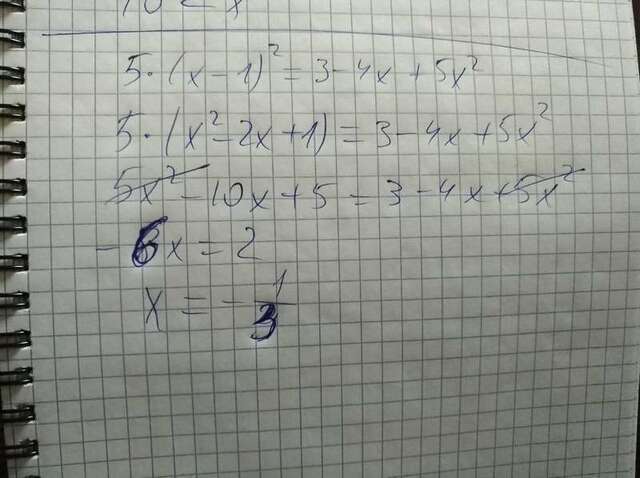 5·(x-1)²=3-4x+5x²
5·(x²-2x+1)=3-4x+5x²
5x²-10x+5=3-4x+5x²
-6x=2
x=-1/3